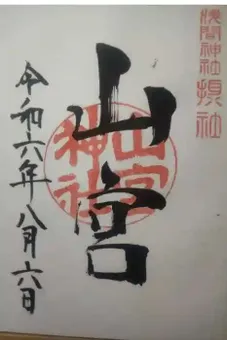 浅間神社摂社
山宮
山宮神社
令和六年八月六日